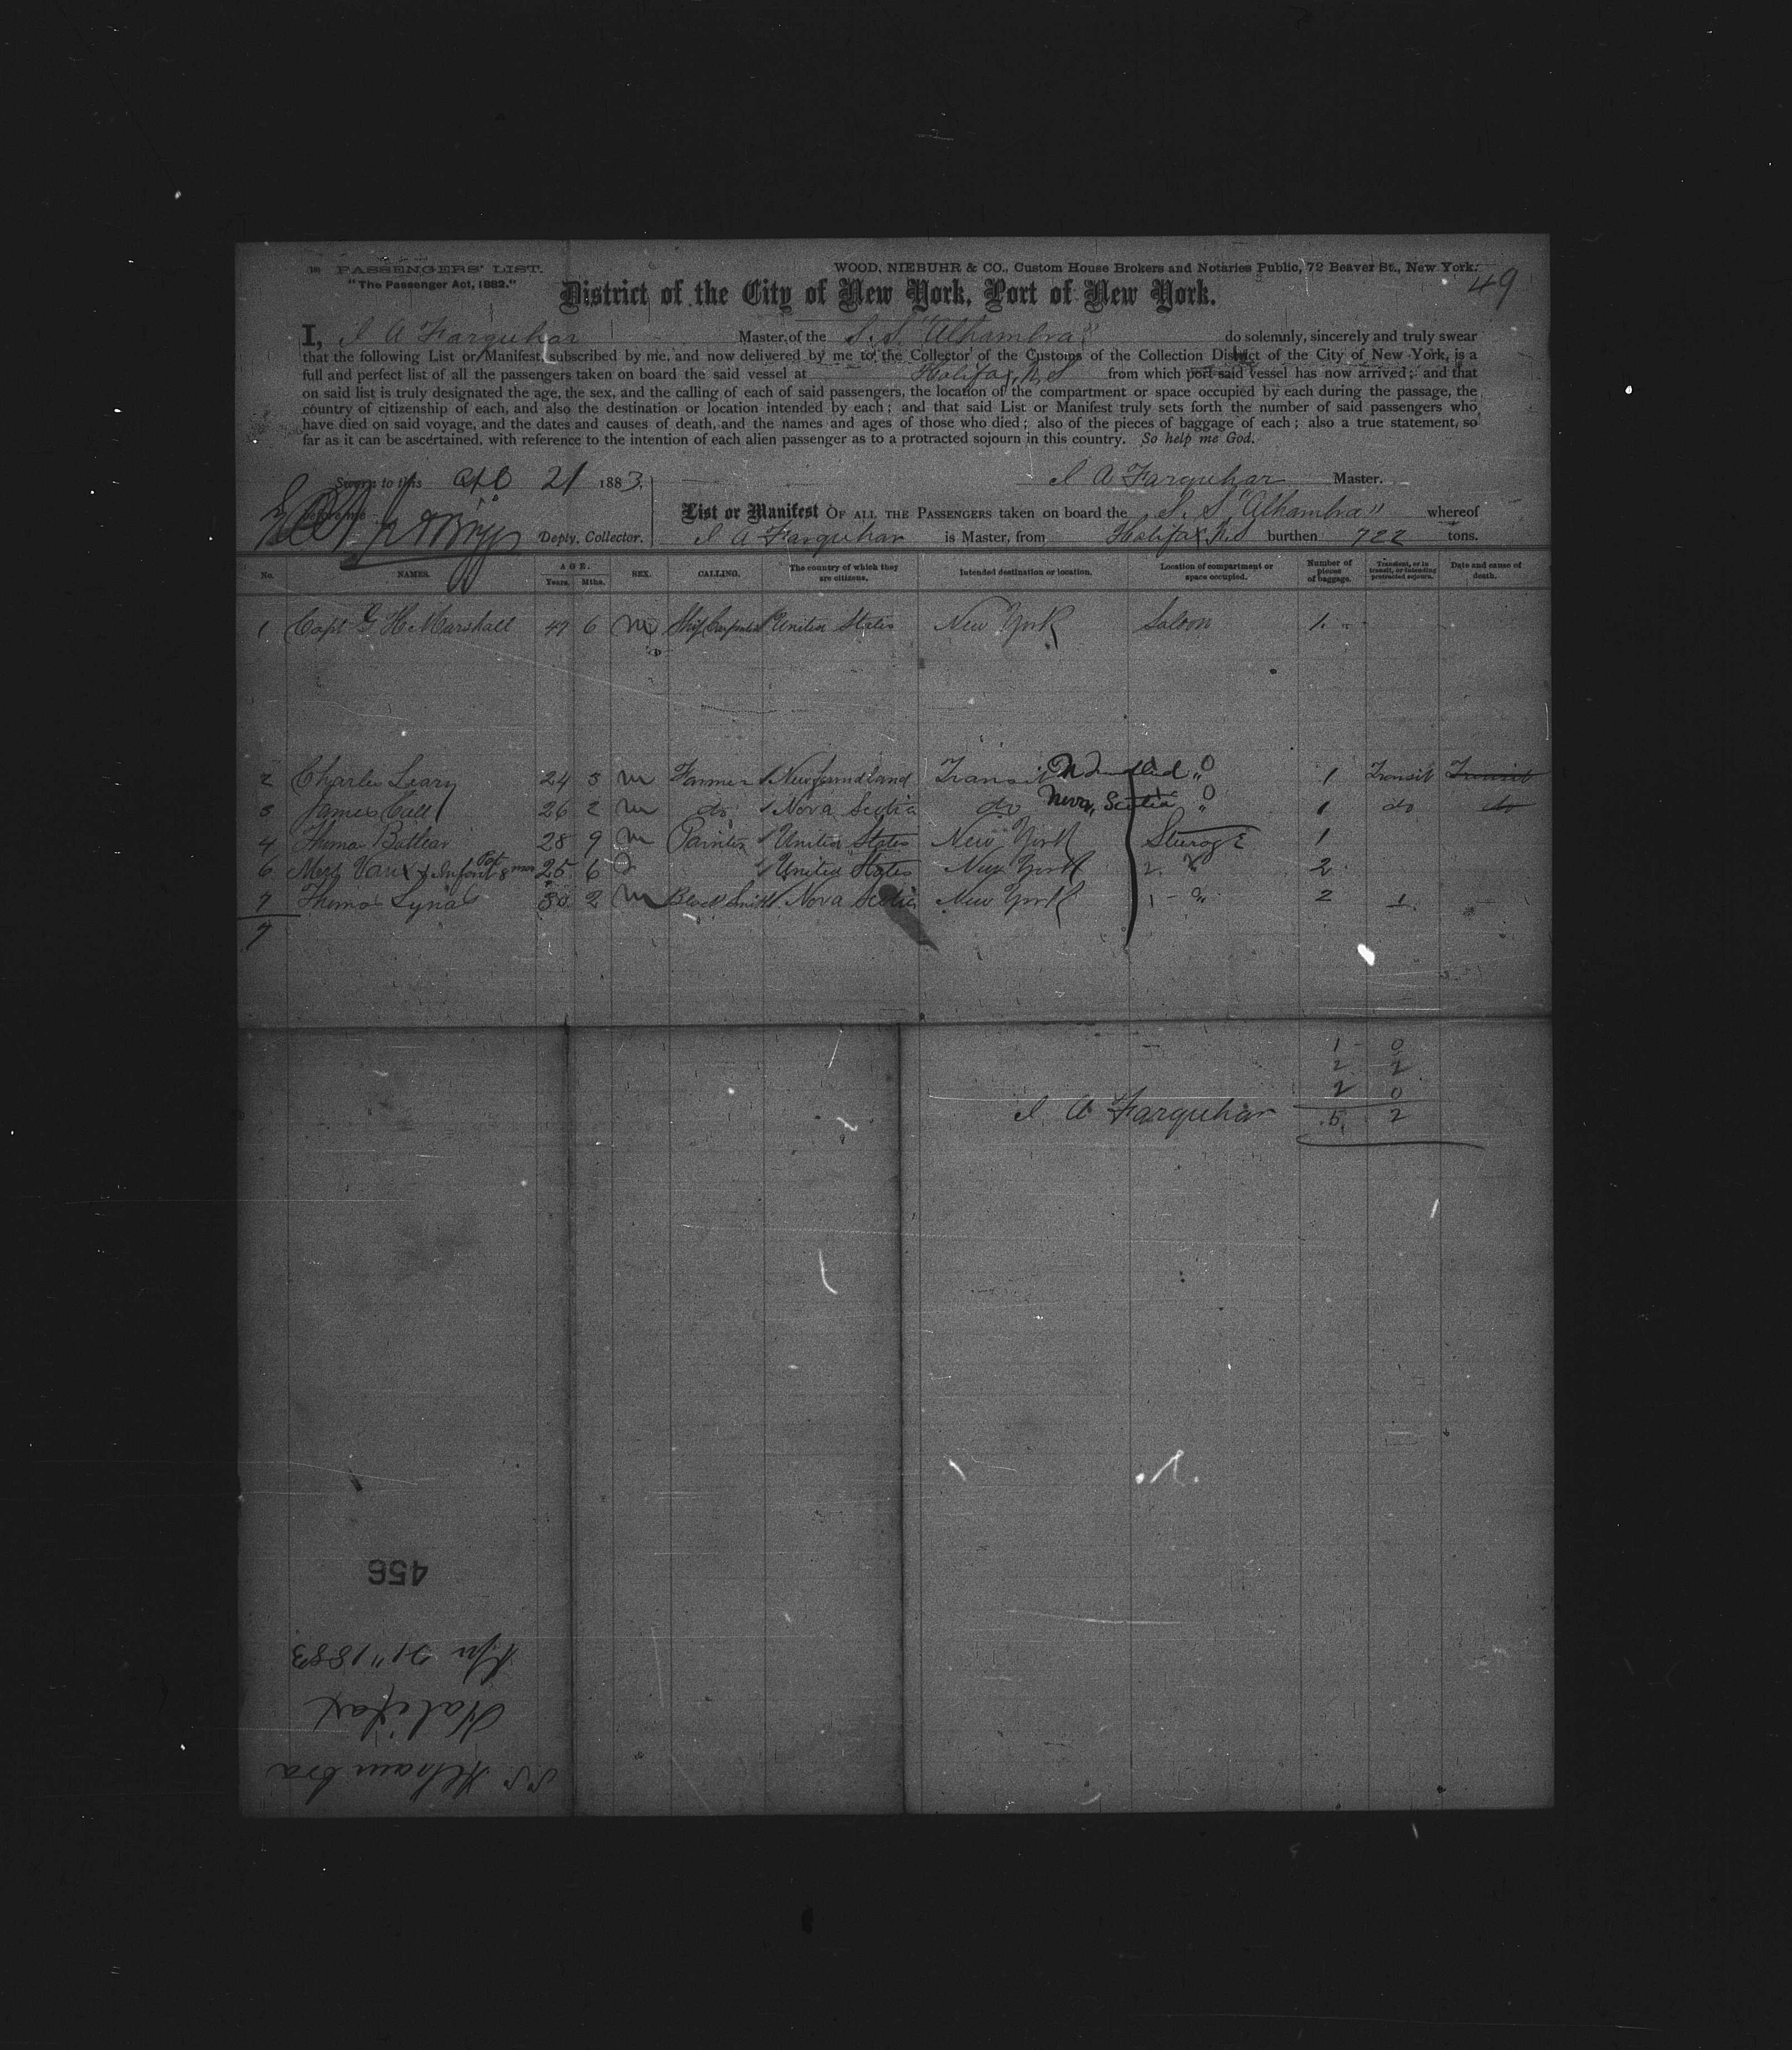 PASSENGERS' LIST.
"The Passenger Act, 1882."
WOOD, NIEBUHR & CO., Custom House Brokers and Notaries Public, 72 Beaver St., New York.
49
District of the City of New York, Port of New York.
I, I A Farquhar Master, of the S.S. "Alhambra" do solemnly, sincerely and truly swear
that the following List or Manifest, subscribed by me, and now delivered by me to the Collector of the Customs of the Collection District of the City of New York, is a
full and perfect list of all the passengers taken on board the said vessel at Halifax, N.S from which port said vessel has now arrived; and that
on said list is truly designated the age, the sex, and the calling of each of said passengers, the location of the compartment or space occupied by each during the passage, the
country of citizenship of each, and also the destination or location intended by each; and that said List or Manifest truly sets forth the number of said passengers who
have died on said voyage, and the dates and causes of death, and the names and ages of those who died; also of the pieces of baggage of each; also a true statement, so
far as it can be ascertained, with reference to the intention of each alien passenger as to a protracted sojourn in this country. So help me God.
Sworn to this 21 1883.
I A Farquhar Master.
before me
Deply. Collector.
List or Manifest OF ALL THE PASSENGERS taken on board the S. S "Alhambra" whereof
I A Farquhar is Master, from Halifax N.S burthen 722 tons.
No. NAMES. AGE. Years. Mths. SEX. CALLING. The country of which they are citizens. Intended destination or location. Location of compartment or space occupied. Number of pieces of baggage. Transient, or in transit, or intending protracted sojourn. Date and cause of death.
1 Capt G H Marshall 47 6 m Ship Carpenter United States New York Saloon 1
2 Charles Leary 24 3 m Farmer Newfoundland Transit " 0 1 Transit Transit
3 James 26 2 m do Nova Scotia do Nova Scotia " 0 1 do do
4 Thomas 28 9 m Painter United States New York 1
6 & Infant 8 mos 25 6 United States New York 2 " 2
7 Thomas 30 2 m Black Smith Nova Scotia New York 1 - " 2 1
7
1 0
2 2
2 0
I A Farquhar 5 2
456
Apr 21" 1883
Halifax
SS Alhambra